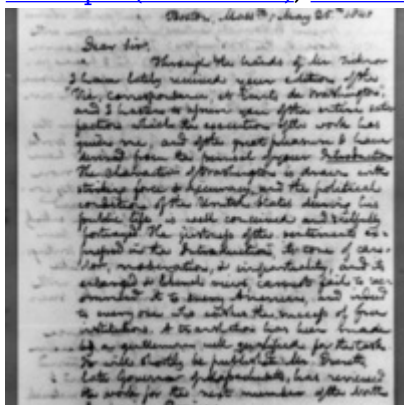 Boston, Mass. May 25th 1840
Dear Sir,
Through the hands of Mr. Ticknor
I have lately received your edition of the
"Vie, correspondance, et Ecrits de Washington,"
and I hasten to assure you of the entire satis-
faction which the execution of the work has
given me, and of the great pleasure I have
derived from the perusal of your Introduction
The character of Washington is drawn with
striking force & accuracy, and the political
condition of the United States during his
public life, is well conceived and
portrayed. The justness of the sentiments ex-
pressed in the Introduction, its tone of can-
dor, moderation, & impartiality, and its
enlarged & liberal views, cannot fail to rec-
ommend it to every American, and indeed
to every one who wishes the success of free
institutions. A translation has been made
by a gentleman well qualified for the task
& will shortly be published. Mr. Everett,
late Governor of Massachusetts, has reviewed
the work for the next number of the North